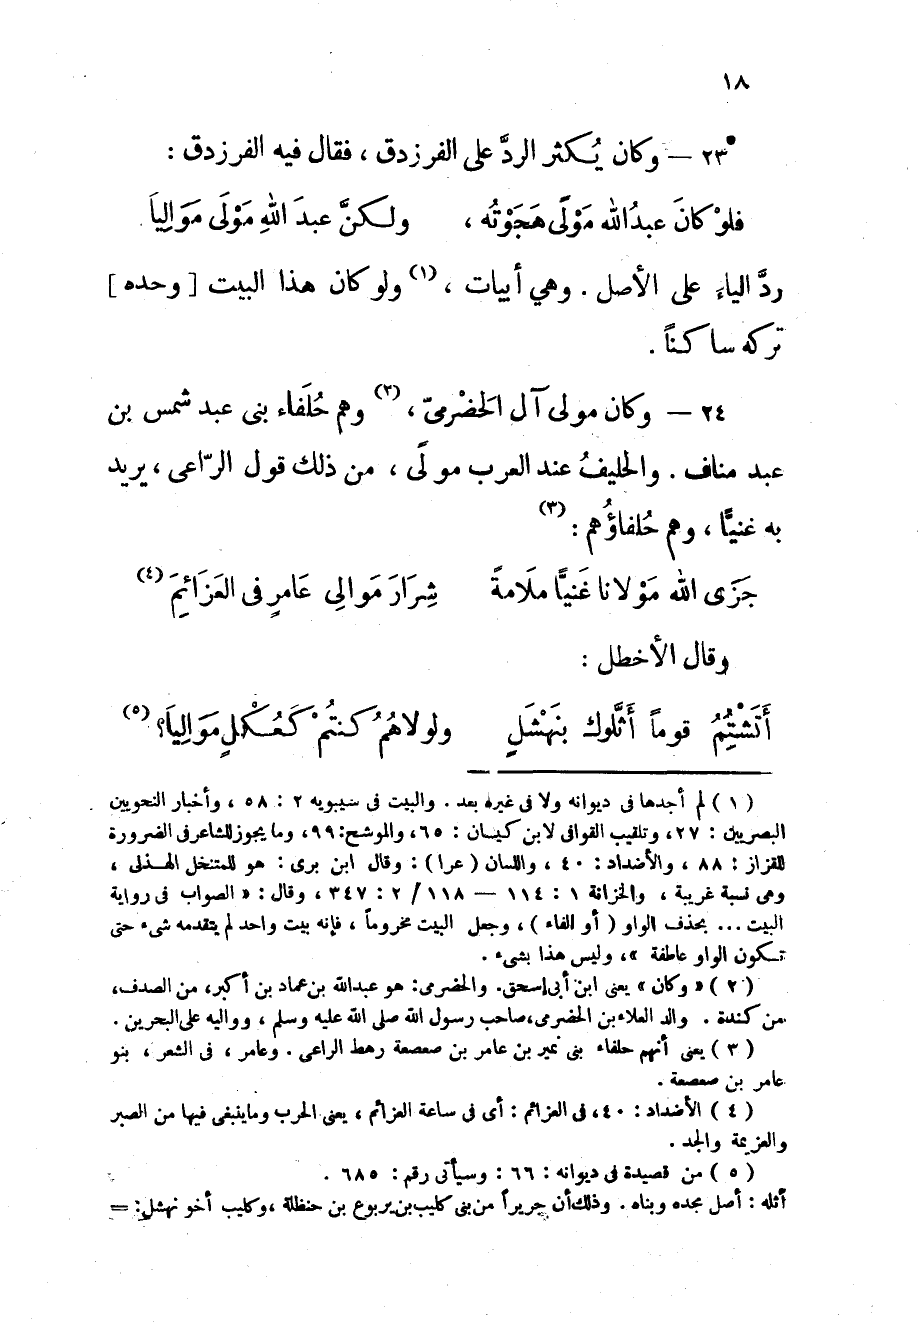 ١٨
٢٣ — وكان يُكثر الردَّ على الفرزدق ، فقال فيه الفرزدق :
فلوْ كانَ عبدُ الله مَوْلًى هَجَوْتُه ، ولكنَّ عبدَ اللهِ مَوْلَى مَوَالِيَا .
ردَّ الياء على الأصل . وهي أبيات ، (١) ولو كان هذا البيت [ وحده ]
تركه ساكناً .
٢٤ — وكان مولى آل الحَضْرميّ ، (٢) وهم حُلَفاء بنى عبد شمس بن
عبد مناف . والحليفُ عند العرب مولًى ، من ذلك قول الرّاعى ، يريد
به غنيًّا ، وهم حُلفاؤُهم : (٣)
جَزَى الله مَوْلانا غَنِيًّا ملَامةً شِرَارَ مَوالِى عَامرٍ فى العَزَائمَ (٤)
وقال الأخطل :
أَتَشْتِمُ قوماً أَثَّلوك بنَهْشَلٍ ولولاهُمُ كنتُمْ كَعُكْلٍ مَوَالِيَا؟ (٥)
( ١ ) لم أجدها فى ديوانه ولا فى غيره بعد . والبيت فى سيبويه ٢ : ٥٨ ، وأخبار النحويين
البصريين : ٢٧، وتلقيب القوافى لابن كيسان : ٦٥، والموشح: ٩٩، وما يجوز للشاعر فى الضرورة
للقزاز : ٨٨ ، والأضداد : ٤٠ ، واللسان ( عرا ) : وقال ابن برى : هو للمتنخل الهذلى ،
وهى نسبة غريبة ، والخزانة ١ : ١١٤ — ١١٨ / ٢ : ٣٤٧ ، وقال : « الصواب فى رواية
البيت ... بحذف الواو ( أو الفاء ) ، وجعل البيت مخروماً ، فإنه بيت واحد لم يتقدمه شىء حتى
تكون الواو عاطفة » ، وليس هذا بشىء .
( ٢ ) « وكان » يعنى ابن أبى إسحق. والحضرمى: هو عبدالله بن عماد بن أكبر، من الصدف،
من كندة . والد العلاء بن الحضرمى، صاحب رسول الله صلى الله عليه وسلم ، وواليه على البحرين .
( ٣ ) يعنى أنهم حلفاء بنى نمير بن عامر بن صعصعة رهط الراعى . وعامر ، فى الشعر ، بنو
عامر بن صعصعة .
( ٤ ) الأضداد : ٤٠، فى العزائم : أى فى ساعة العزائم ، يعنى الحرب وما ينبغى فيها من الصبر
والعزيمة والجد .
( ٥ ) من قصيدة فى ديوانه : ٦٦ : وسيأتى رقم : ٦٨٥ .
أثله : أصل مجده وبناه . وذلك أن جريراً من بنى كليب بن يربوع بن حنظلة ، وكليب أخو نهشل: =